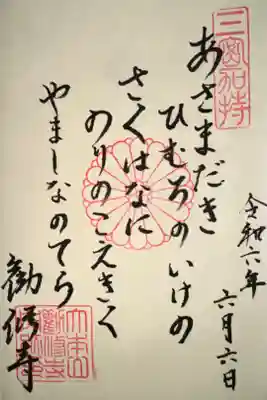 三密加持
あさまだき
ひむろのいけの
さくはなに
のりのこえきく
やましなのてら
勧修寺
令和六年
六月六日